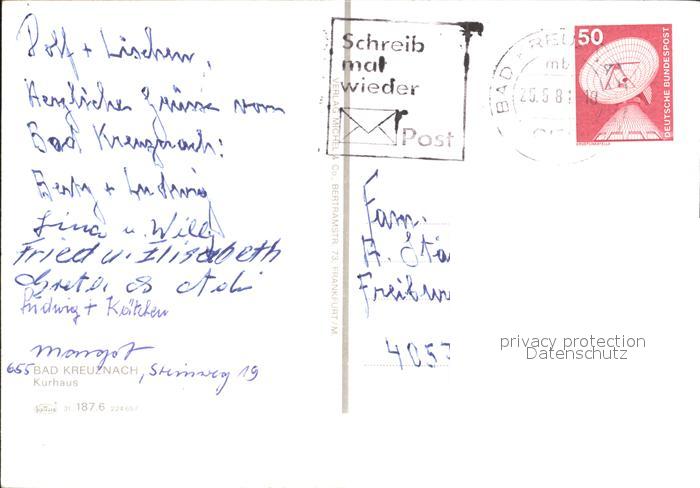 Rolf + Lieschen,
Herzliche Grüsse vom
Bad Kreuznach:
Berty + Ludwig
Lina u. Willy
Fried u. Elisabeth
Greta & Adi
Ludwig + Kätchen
Margot
655 BAD KREUZNACH, Steinweg 19
Kurhaus
31. 187.6 224 657
VERLAG MICHEL & Co., BERTRAMSTR. 73, FRANKFURT/M
Schreib
mal
wieder
Post
BAD KREUZ
mb
50
DEUTSCHE BUNDESPOST
Fam.
Freibur
4053
privacy protection
Datenschutz